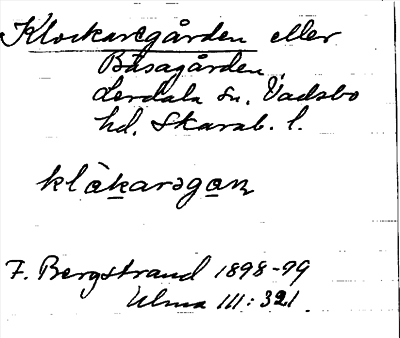 Klockaregården eller
Båsagården,
Lerdala sn. Vadsbo
hd. Skarab. l.
klàkarəgan
F. Bergstrand 1898-99
Ulma III:321.